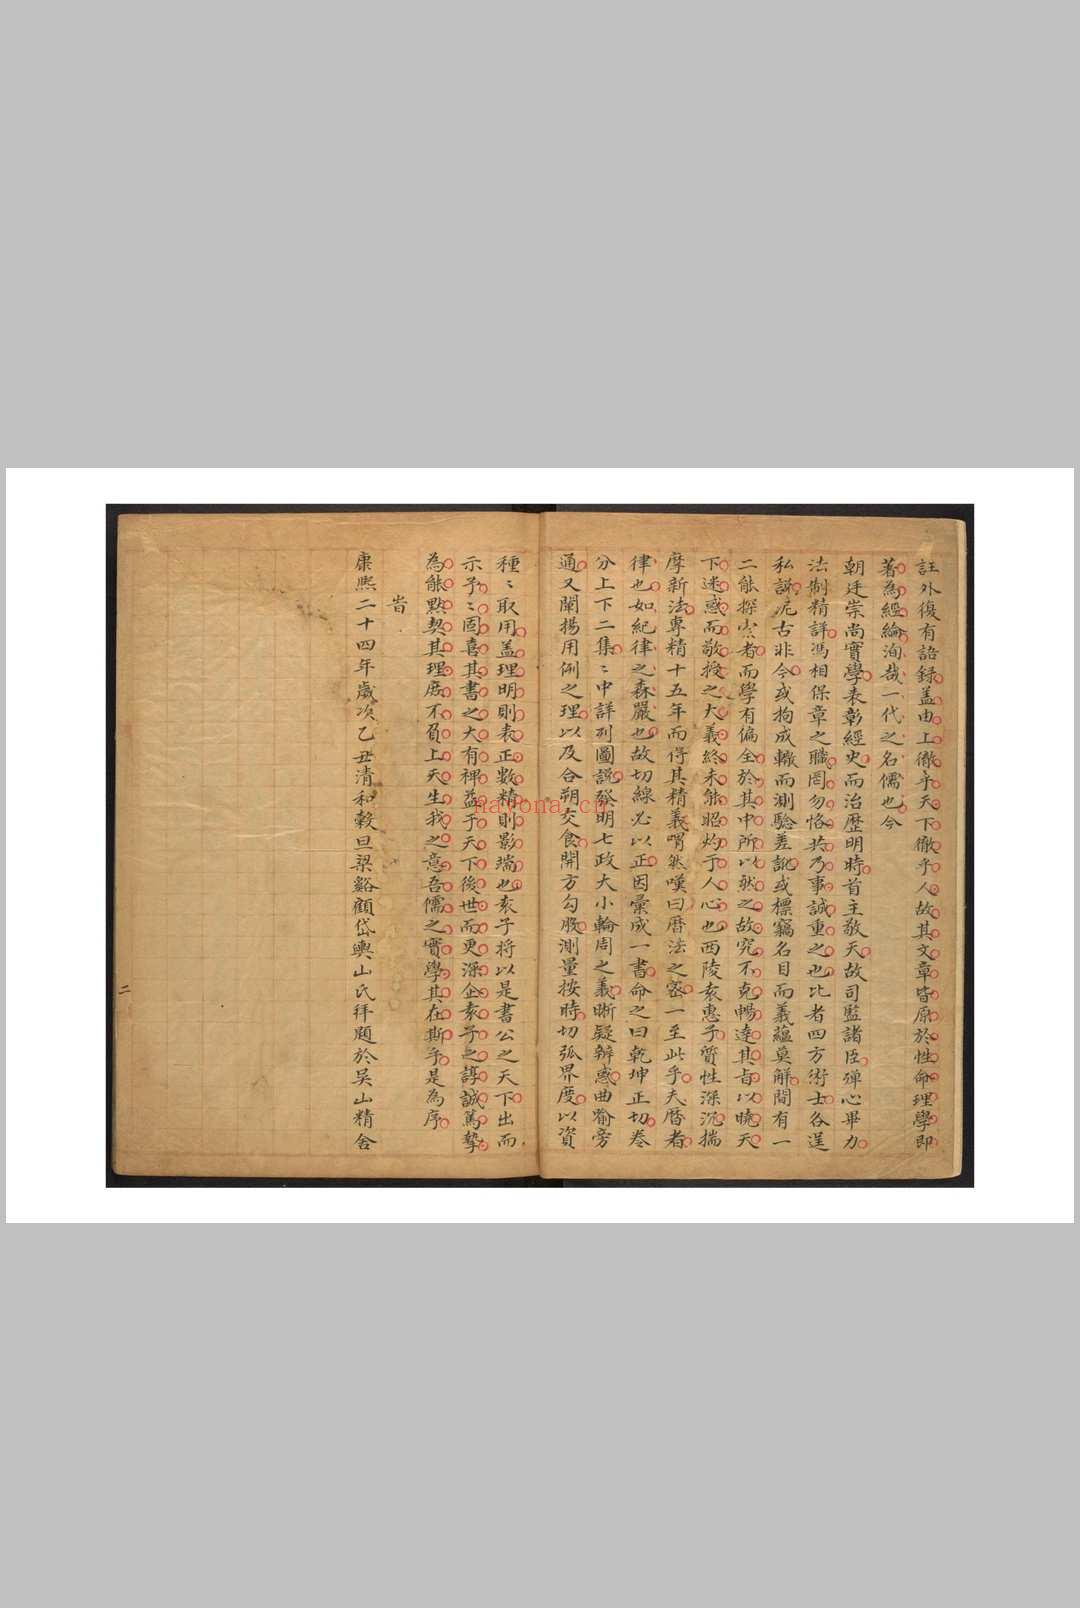 註外復有語録盖由上徹乎天下徹乎人故其文章皆原於性命理學即
著為經綸洵哉一代之名儒也今
朝廷崇尚實學表彰經史而治歷明時首主敬天故司監諸臣殫心畢力
法制精詳馮相保章之職罔勿恪共乃事誠重之也比者四方術士各逞
私説泥古非今或拘成轍而測驗差訛或標竊名目而義蘊莫解間有一
二能探索者而學有偏全於其中所以然之故究不克暢達其旨以曉天
下迷惑而敬授之大義終未能昭灼于人心也西陵袁惠子質性深沉揣
摩新法專精十五年而得其精義喟然嘆曰曆法之密一至此乎夫曆者
律也如紀律之森嚴也故切線必以正因彙成一書命之曰乾坤正切卷
分上下二集〻中詳列圖説發明七政大小輪周之義晰疑辨惑曲喻旁
通又闡揚用例之理以及合朔交食開方勾股測量按時切弧界度以資
種〻取用盖理明則表正數精則影端也袁子將以是書公之天下出而
示予〻固喜其書之大有裨益于天下後世而更深企袁子之諄誠篤摯
為能黙契其理庶不負上天生我之意吾儒之實學其在斯乎是為序
旹
康熙二十四年歲次乙丑清和穀旦梁谿顧岱輿山氏拜題於吳山精舍
二
nayona.cn